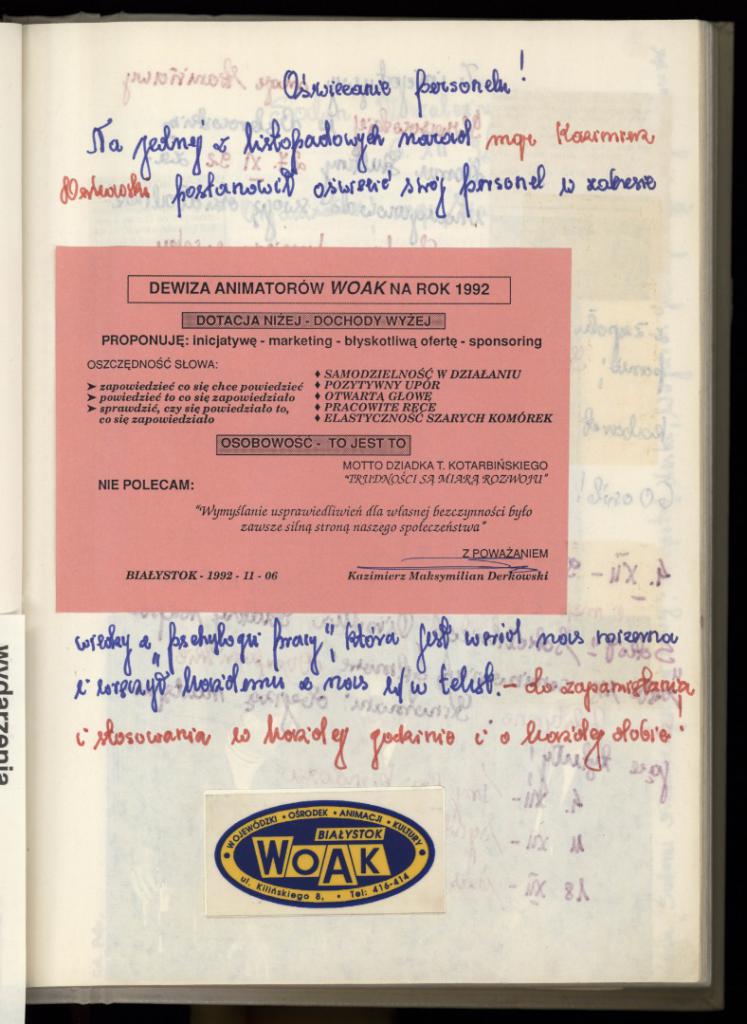 Oświecanie personelu!
Na jednej z listopadowych narad mgr Kazimierz
Derkowski postanowił oświecić swój personel w zakresie
DEWIZA ANIMATORÓW WOAK NA ROK 1992
DOTACJA NIŻEJ - DOCHODY WYŻEJ
PROPONUJĘ: inicjatywę - marketing - błyskotliwą ofertę - sponsoring
OSZCZĘDNOŚĆ SŁOWA:
➤ zapowiedzieć co się chce powiedzieć
➤ powiedzieć to co się zapowiedziało
➤ sprawdzić, czy się powiedziało to,
co się zapowiedziało
♦ SAMODZIELNOŚĆ W DZIAŁANIU
♦ POZYTYWNY UPÓR
♦ OTWARTĄ GŁOWĘ
♦ PRACOWITE RĘCE
♦ ELASTYCZNOŚĆ SZARYCH KOMÓREK
OSOBOWOŚĆ - TO JEST TO
MOTTO DZIADKA T. KOTARBIŃSKIEGO
"TRUDNOŚCI SĄ MIARĄ ROZWOJU"
NIE POLECAM:
"Wymyślanie usprawiedliwień dla własnej bezczynności było
zawsze silną stroną naszego społeczeństwa"
Z POWAŻANIEM
BIAŁYSTOK - 1992 - 11 - 06
Kazimierz Maksymilian Derkowski
wiedzy z „pschylogii pracy", która jest wśród nas
i wręczył każdemu z nas w/w tekst. - do zapamiętania
i stosowania w każdej godzinie i o każdej dobie!
WOJEWÓDZKI • OŚRODEK • ANIMACJI • KULTURY
BIAŁYSTOK
WOAK
ul. Kilińskiego 8, • Tel: 416-414
wydarzenia